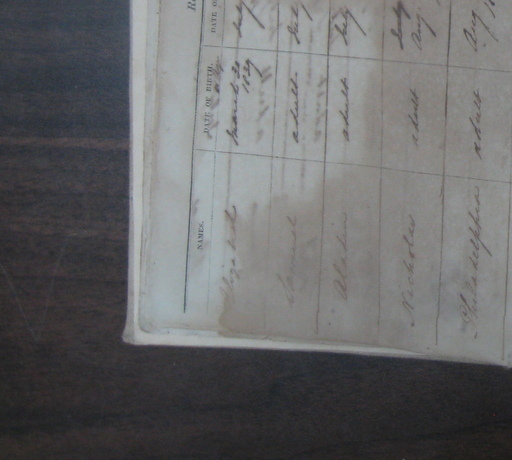 NAMES. DATE OF BIRTH. DATE O
Elizabeth March 30 July
1839
Samuel adult July
Aladin adult July
Nicholas adult July
Aug.
Philadelphia adult Aug